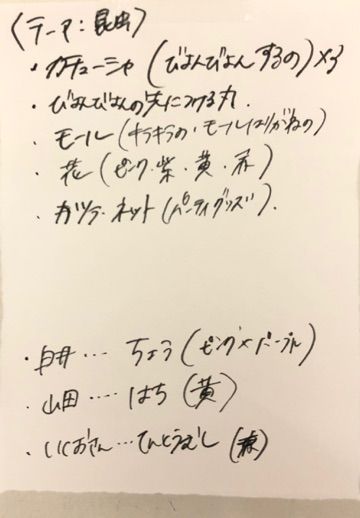 (テーマ：昆虫)
・カチューシャ(びよんびよんするの)×3
・びよんびよんの先につける丸
・モール(キラキラの・モールはりがねの)
・花(ピンク・紫・黄・赤)
・カツラ・ネット(パーティグッズ).
・白井…ちょう(ピンク×パープル)
・山田…はち(黄)
・いくおさん…てんとうむし(赤)